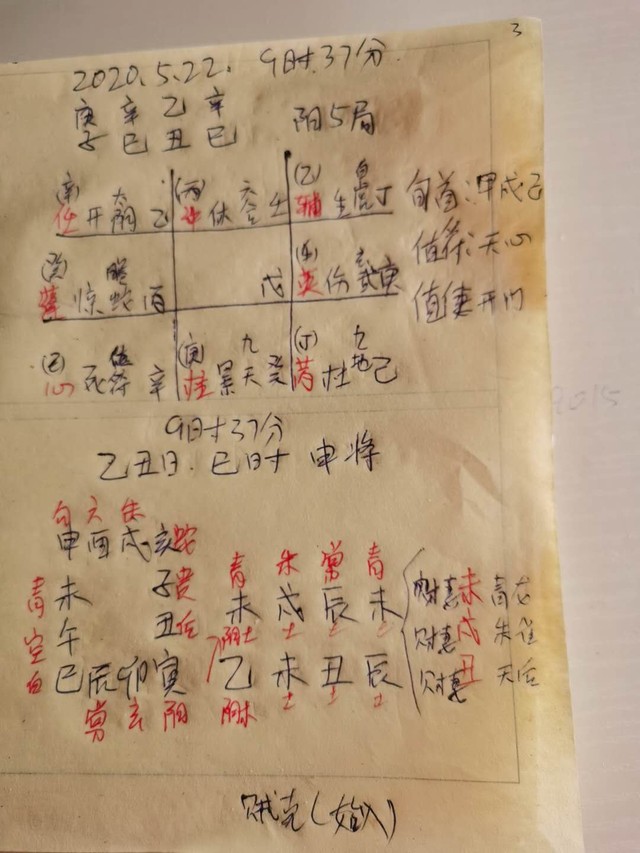 3
2020.5.22. 9时37分.
庚 辛 乙 辛
子 巳 丑 巳 阳5局
(辛) 太 (丙) 六 (乙) 白
任 开 阴 乙 冲 休 合 壬 辅 生 虎 丁 旬首:甲戌己
(癸) 螣 (壬) 玄
蓬 惊 蛇 丙 戊 英 伤 武 庚 值符:天心
值使 开门
(己) 值 (庚) 九 (丁) 九
心 死 符 辛 柱 景 天 癸 芮 杜 地 己
9时37分
乙丑日.巳时 申将
勾 六 朱
申 酉 戌 亥 蛇
青 未 子 贵 青 朱 常 青
空 午 丑 后 未 戌 辰 未 财 未 青龙
阴土 土 土 土 财 戌 朱雀
白 巳 辰 卯 寅 乙 未 丑 辰 财 丑 天后
常 玄 阴 阴木 土 土 土
贼克(始入)